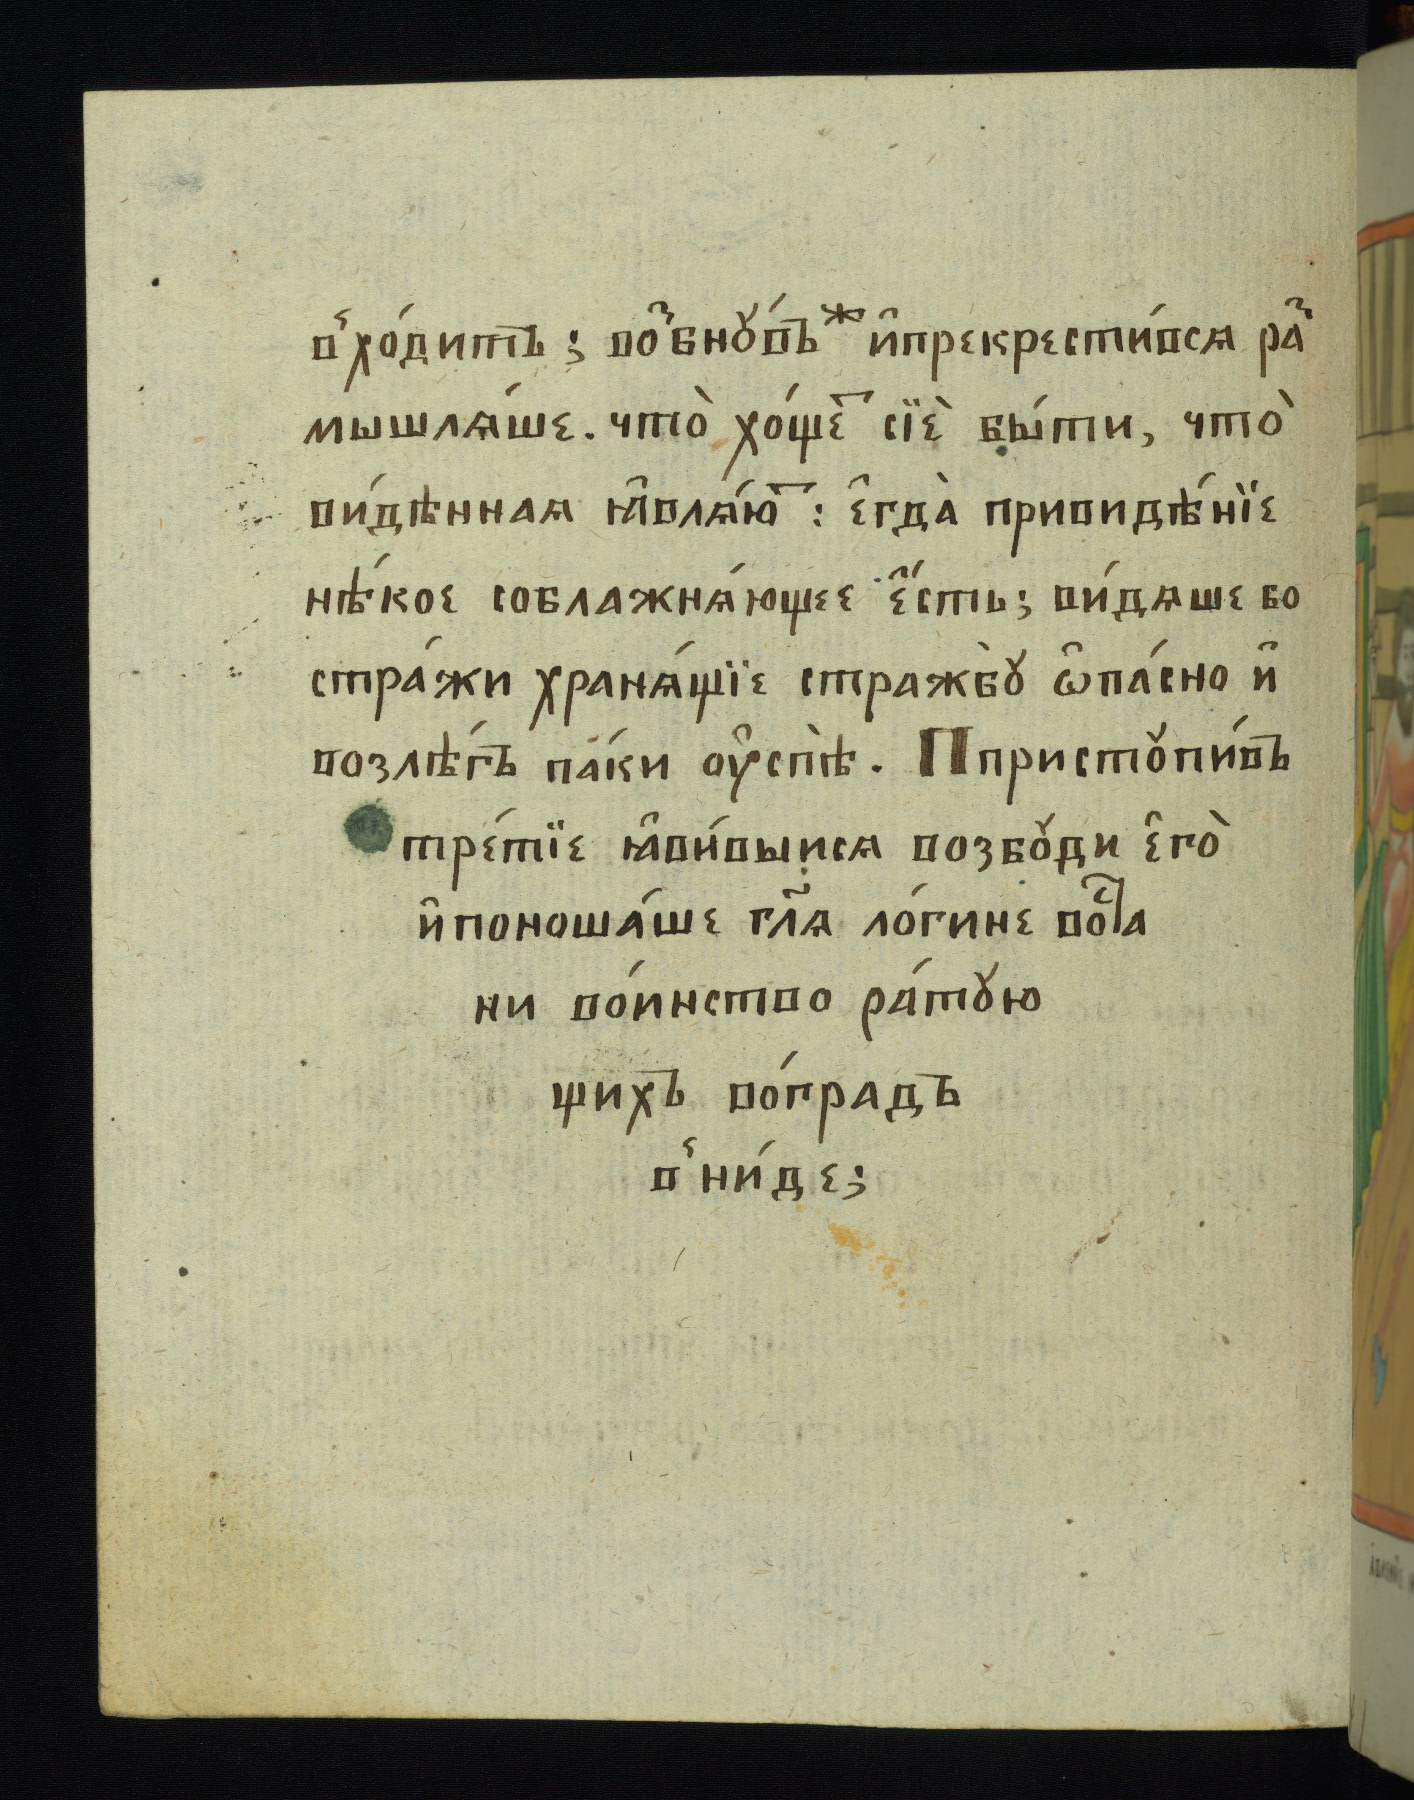 в̾хо́дитъ; воз̾бнꙋ́въⷤ и҆прекрести́всѧ раⷥ
мышлѧ́ше. что̀ хо́щеⷮ сїѐ бы́ти, что̀
ви́дѣнная ꙗ҆влѧ́юⷮ: є҆гда̀ привидѣ́нїе
нѣ́кое соблажнѧ́ющее є҆́сть; ви́дѧше бо
стра́жи хранѧ́щїе стражбꙋ̀ ѡ҆па́сно и҆
возлѣ́гъ па́ки оу҆спѣ̀. Ппристꙋпи́въ
тре́тїе ꙗ҆ви́выисѧ возбꙋдѝ є҆го̀
и҆поноша́ше гл҃ѧ ло́гине воⷭ҇та
ни во́инство ра́тꙋю
щихъ во́градъ
в̾ни́де;